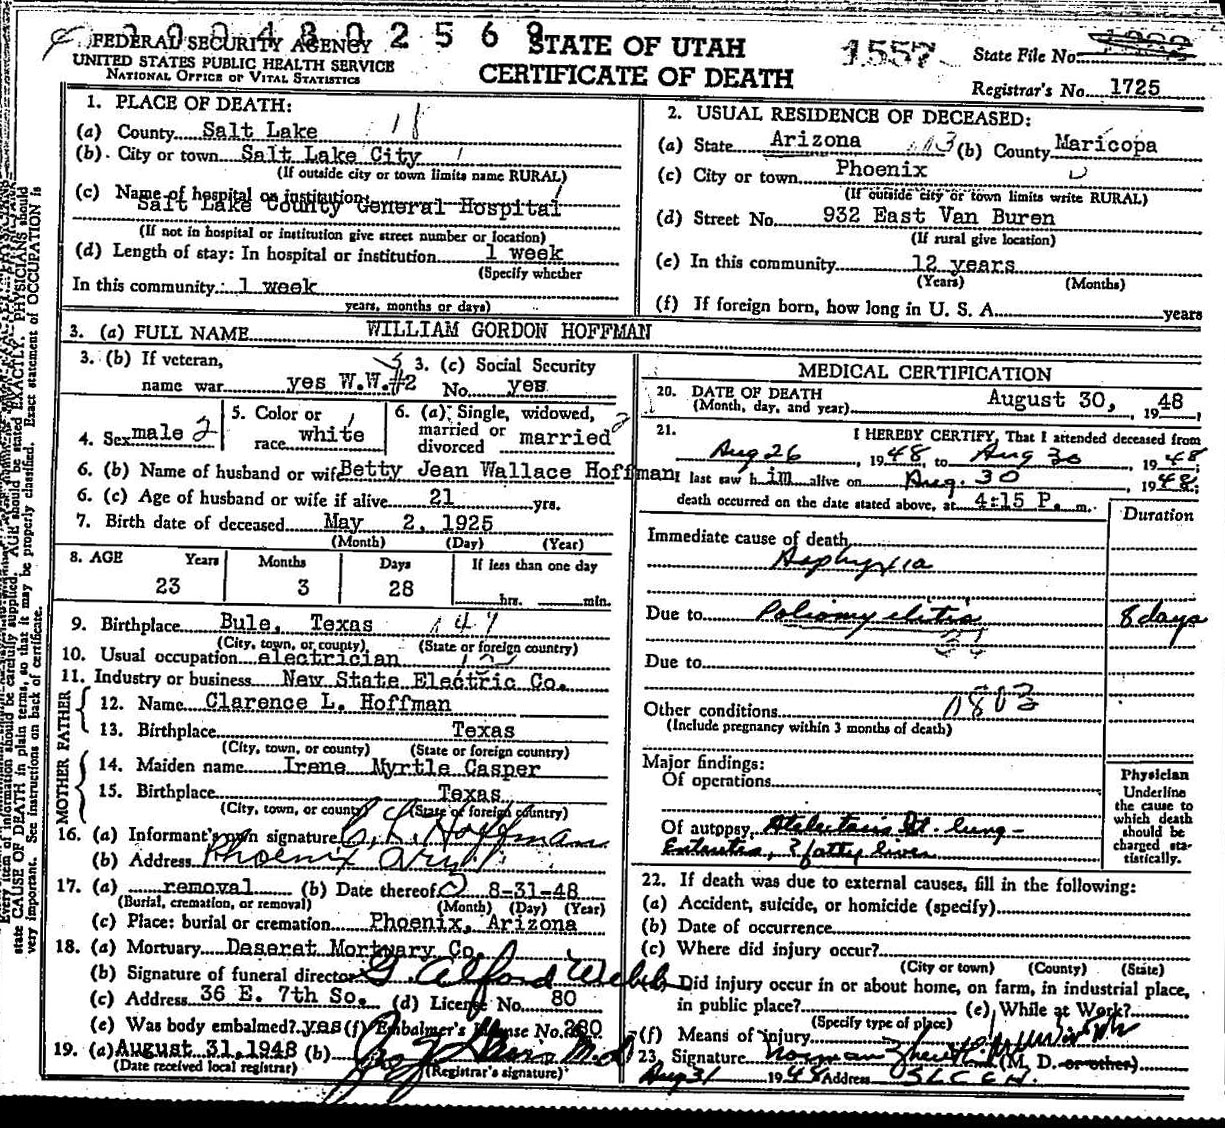 2 5 6 9
FEDERAL SECURITY AGENCY
UNITED STATES PUBLIC HEALTH SERVICE
NATIONAL OFFICE OF VITAL STATISTICS
STATE OF UTAH
CERTIFICATE OF DEATH
1557
State File No.
Registrar's No. 1725
1. PLACE OF DEATH:
(a) County Salt Lake 18
(b) City or town Salt Lake City 1
(If outside city or town limits name RURAL)
(c) Name of hospital or institution:
Salt Lake County General Hospital
(If not in hospital or institution give street number or location)
(d) Length of stay: In hospital or institution 1 week
(Specify whether
In this community: 1 week
years, months or days)
2. USUAL RESIDENCE OF DECEASED:
(a) State Arizona (b) County Maricopa
(c) City or town Phoenix
(If outside city or town limits write RURAL)
(d) Street No. 932 East Van Buren
(If rural give location)
(e) In this community 12 years
(Years) (Months)
(f) If foreign born, how long in U. S. A. years
3. (a) FULL NAME WILLIAM GORDON HOFFMAN
3. (b) If veteran,
name war yes W.W.#2
3. (c) Social Security
No. yes
4. Sex male 2
5. Color or
race white 1
6. (a) Single, widowed,
married or
divorced married 2
6. (b) Name of husband or wife Betty Jean Wallace Hoffman
6. (c) Age of husband or wife if alive 21 yrs.
7. Birth date of deceased May 2, 1925
(Month) (Day) (Year)
8. AGE Years Months Days If less than one day
23 3 28 hrs. min.
9. Birthplace Bule, Texas
(City, town, or county) (State or foreign country)
10. Usual occupation electrician
11. Industry or business New State Electric Co.
FATHER
12. Name Clarence L. Hoffman
13. Birthplace Texas
(City, town, or county) (State or foreign country)
MOTHER
14. Maiden name Irene Myrtle Casper
15. Birthplace Texas
(City, town, or county) (State or foreign country)
16. (a) Informant's own signature C. L. Hoffman
(b) Address Phoenix Ariz.
17. (a) removal (b) Date thereof 8-31-48
(Burial, cremation, or removal) (Month) (Day) (Year)
(c) Place: burial or cremation Phoenix, Arizona
18. (a) Mortuary Deseret Mortuary Co.
(b) Signature of funeral director G. Alford Webb
(c) Address 36 E. 7th So. (d) License No. 80
(e) Was body embalmed? yes (f) Embalmer's License No. 280
19. (a) August 31, 1948 (b) M.D.
(Date received local registrar) (Registrar's signature)
MEDICAL CERTIFICATION
20. DATE OF DEATH
(Month, day, and year) August 30, 1948
21. I HEREBY CERTIFY, That I attended deceased from
Aug 26, 1948, to Aug 30, 1948
I last saw him alive on Aug. 30, 1948;
death occurred on the date stated above, at 4:15 P. m.
Duration
Immediate cause of death
Asphyxia
Due to Poliomyelitis 8 days
Due to
Other conditions
(Include pregnancy within 3 months of death)
Major findings:
Of operations
Of autopsy Atelectasis Rt. lung -
Enteritis, ? fatty liver
Physician
Underline
the cause to
which death
should be
charged sta-
tistically.
22. If death was due to external causes, fill in the following:
(a) Accident, suicide, or homicide (specify)
(b) Date of occurrence
(c) Where did injury occur?
(City or town) (County) (State)
Did injury occur in or about home, on farm, in industrial place,
in public place? (e) While at Work?
(Specify type of place)
(f) Means of injury
23. Signature Norman (M. D. or other)
Aug 31 1948 Address SLCGH.
Every item of information should be carefully supplied. AGE should be stated EXACTLY. PHYSICIANS should
state CAUSE OF DEATH in plain terms, so that it may be properly classified. Exact statement of OCCUPATION is
very important. See instructions on back of certificate.